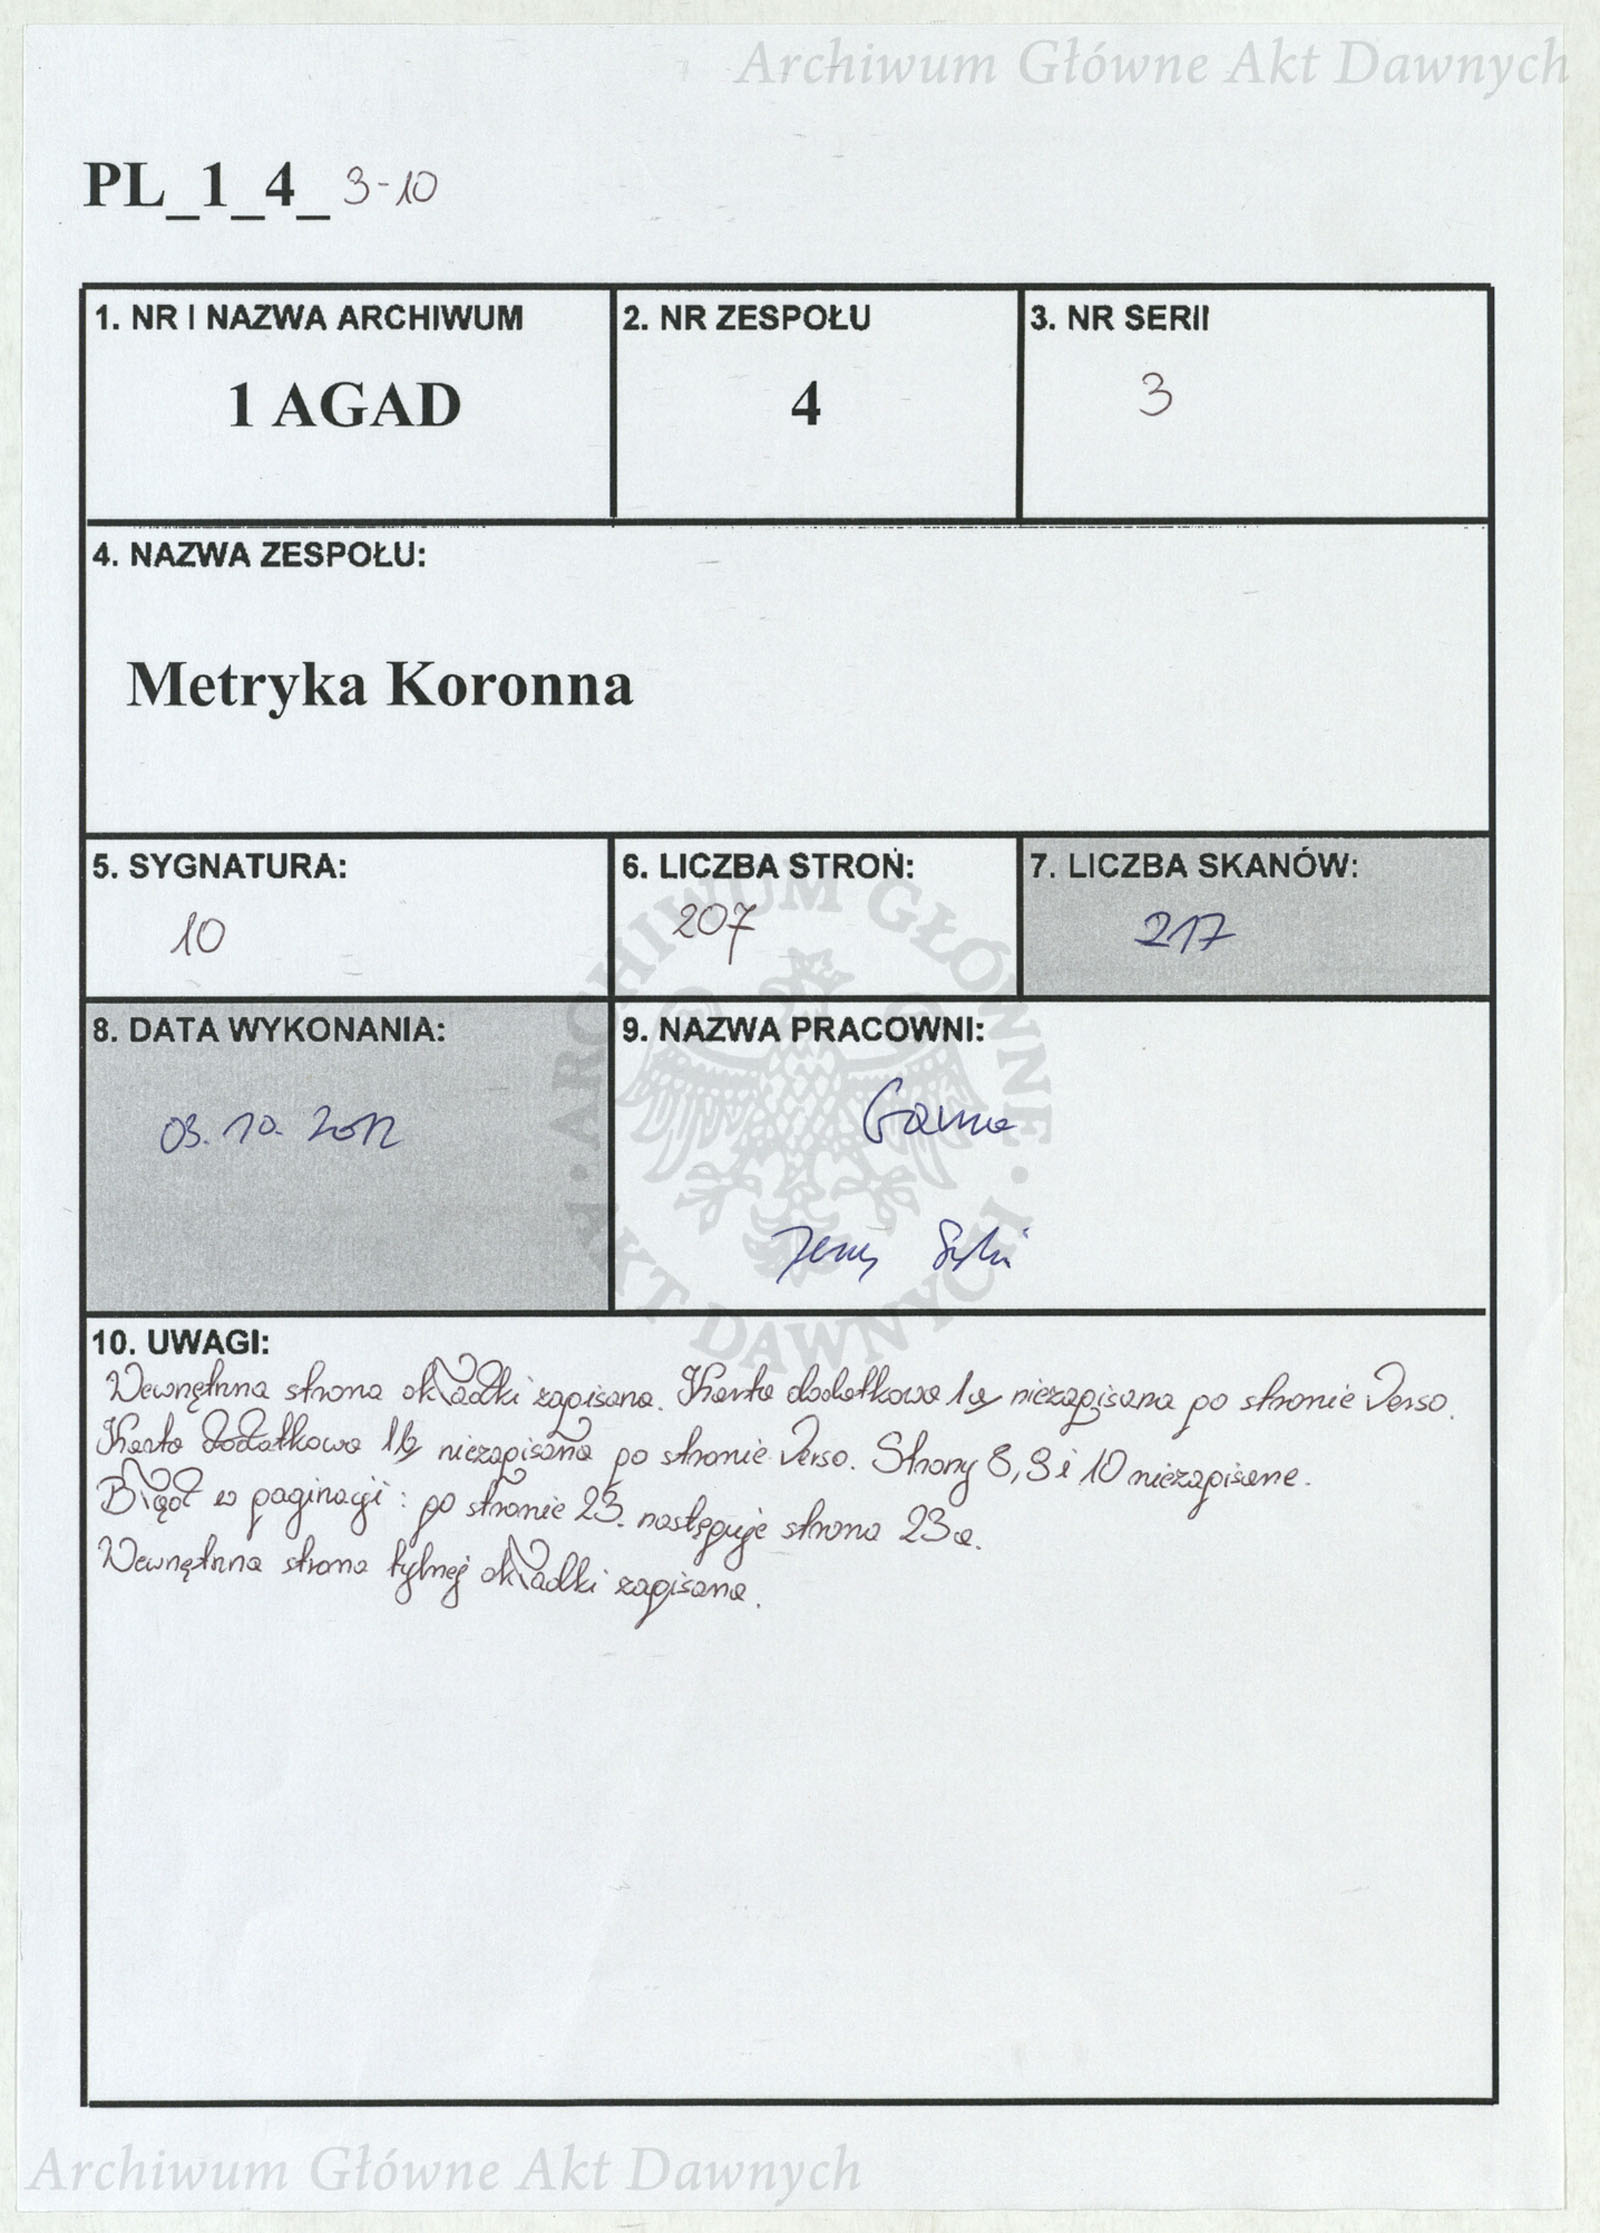 Archiwum Główne Akt Dawnych
PL_1_4_ 3-10
1. NR I NAZWA ARCHIWUM
1 AGAD
2. NR ZESPOŁU
4
3. NR SERII
3
4. NAZWA ZESPOŁU:
Metryka Koronna
5. SYGNATURA:
10
6. LICZBA STRON:
207
7. LICZBA SKANÓW:
217
8. DATA WYKONANIA:
03. 10. 2012
9. NAZWA PRACOWNI:
Jerzy
10. UWAGI:
Wewnętrzna strona okładki zapisana. Karta dodatkowa 1a niezapisana po stronie verso.
Karta dodatkowa 1b niezapisana po stronie verso. Strony 8, 9 i 10 niezapisane.
Błąd w paginacji: po stronie 23. następuje strona 23a.
Wewnętrzna strona tylnej okładki zapisana.
ARCHIWUM GŁÓWNE · AKT DAWNYCH ·
Archiwum Główne Akt Dawnych